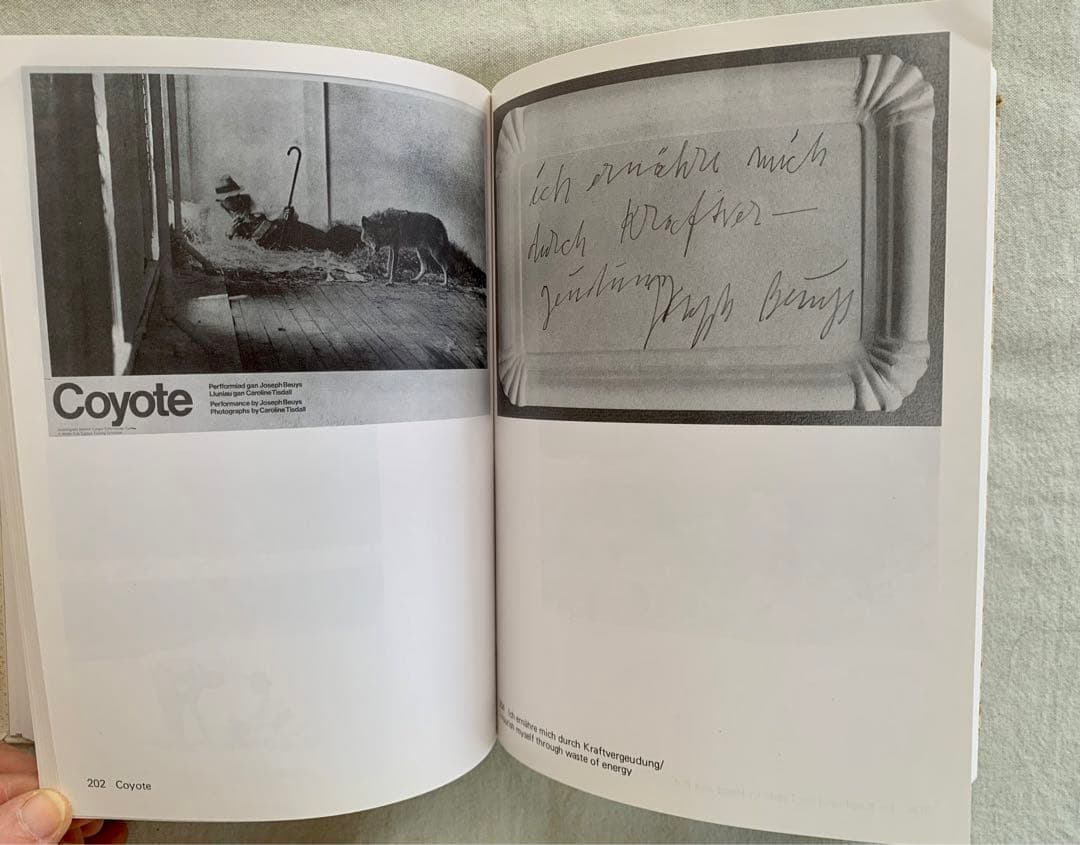 Coyote
Perfformiad gan Joseph Beuys
Lluniau gan Caroline Tisdall
Performance by Joseph Beuys
Photographs by Caroline Tisdall
202 Coyote
ich ernähre mich
durch Kraftver—
geudung Joseph Beuys
Ich ernähre mich durch Kraftvergeudung/
myself through waste of energy